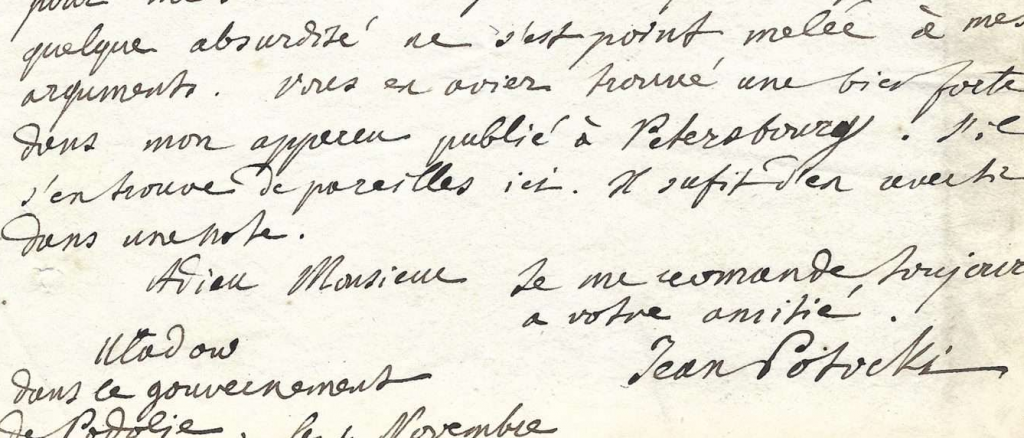 quelque absurdité ne s'est point melée à mes
arguments. Vous en aviez trouvé une bien forte
dans mon appereu publié à Petersbourg. S'il
s'en trouve de pareilles ici. Il sufit d'en avertir
dans une note.
Adieu Monsieur Je me recomande toujour
a votre amitié.
Uladow
Jean Potocki
dans le gouvernement
de Podolie. le Novembre